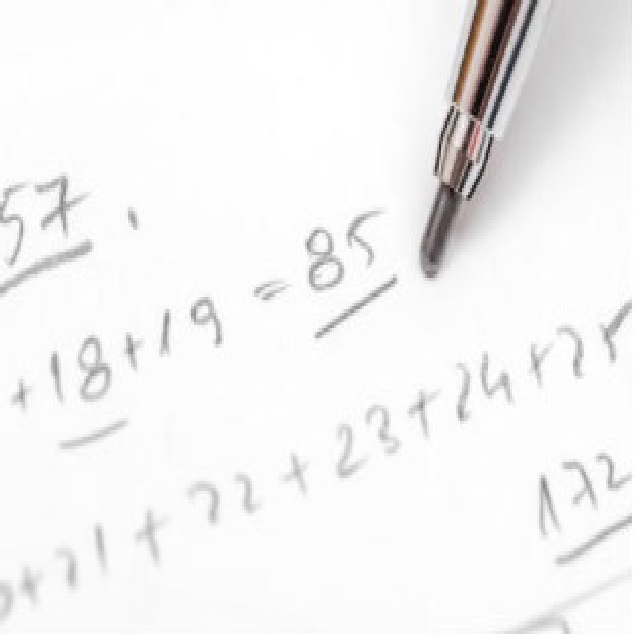 57.
+18+19=85
0+21+22+23+24+25
172